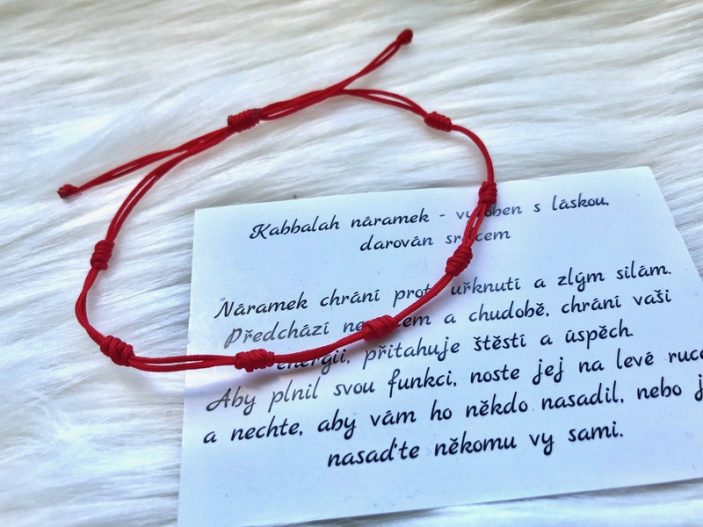 Kabbalah náramek - vyroben s láskou,
darován srdcem
Náramek chrání proti uřknutí a zlým silám.
Předchází nemocem a chudobě, chrání vaši
energii, přitahuje štěstí a úspěch.
Aby plnil svou funkci, noste jej na levé ruce
a nechte, aby vám ho někdo nasadil, nebo
nasaďte někomu vy sami.